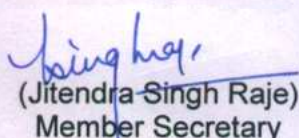 (Jitendra Singh Raje)
Member Secretary